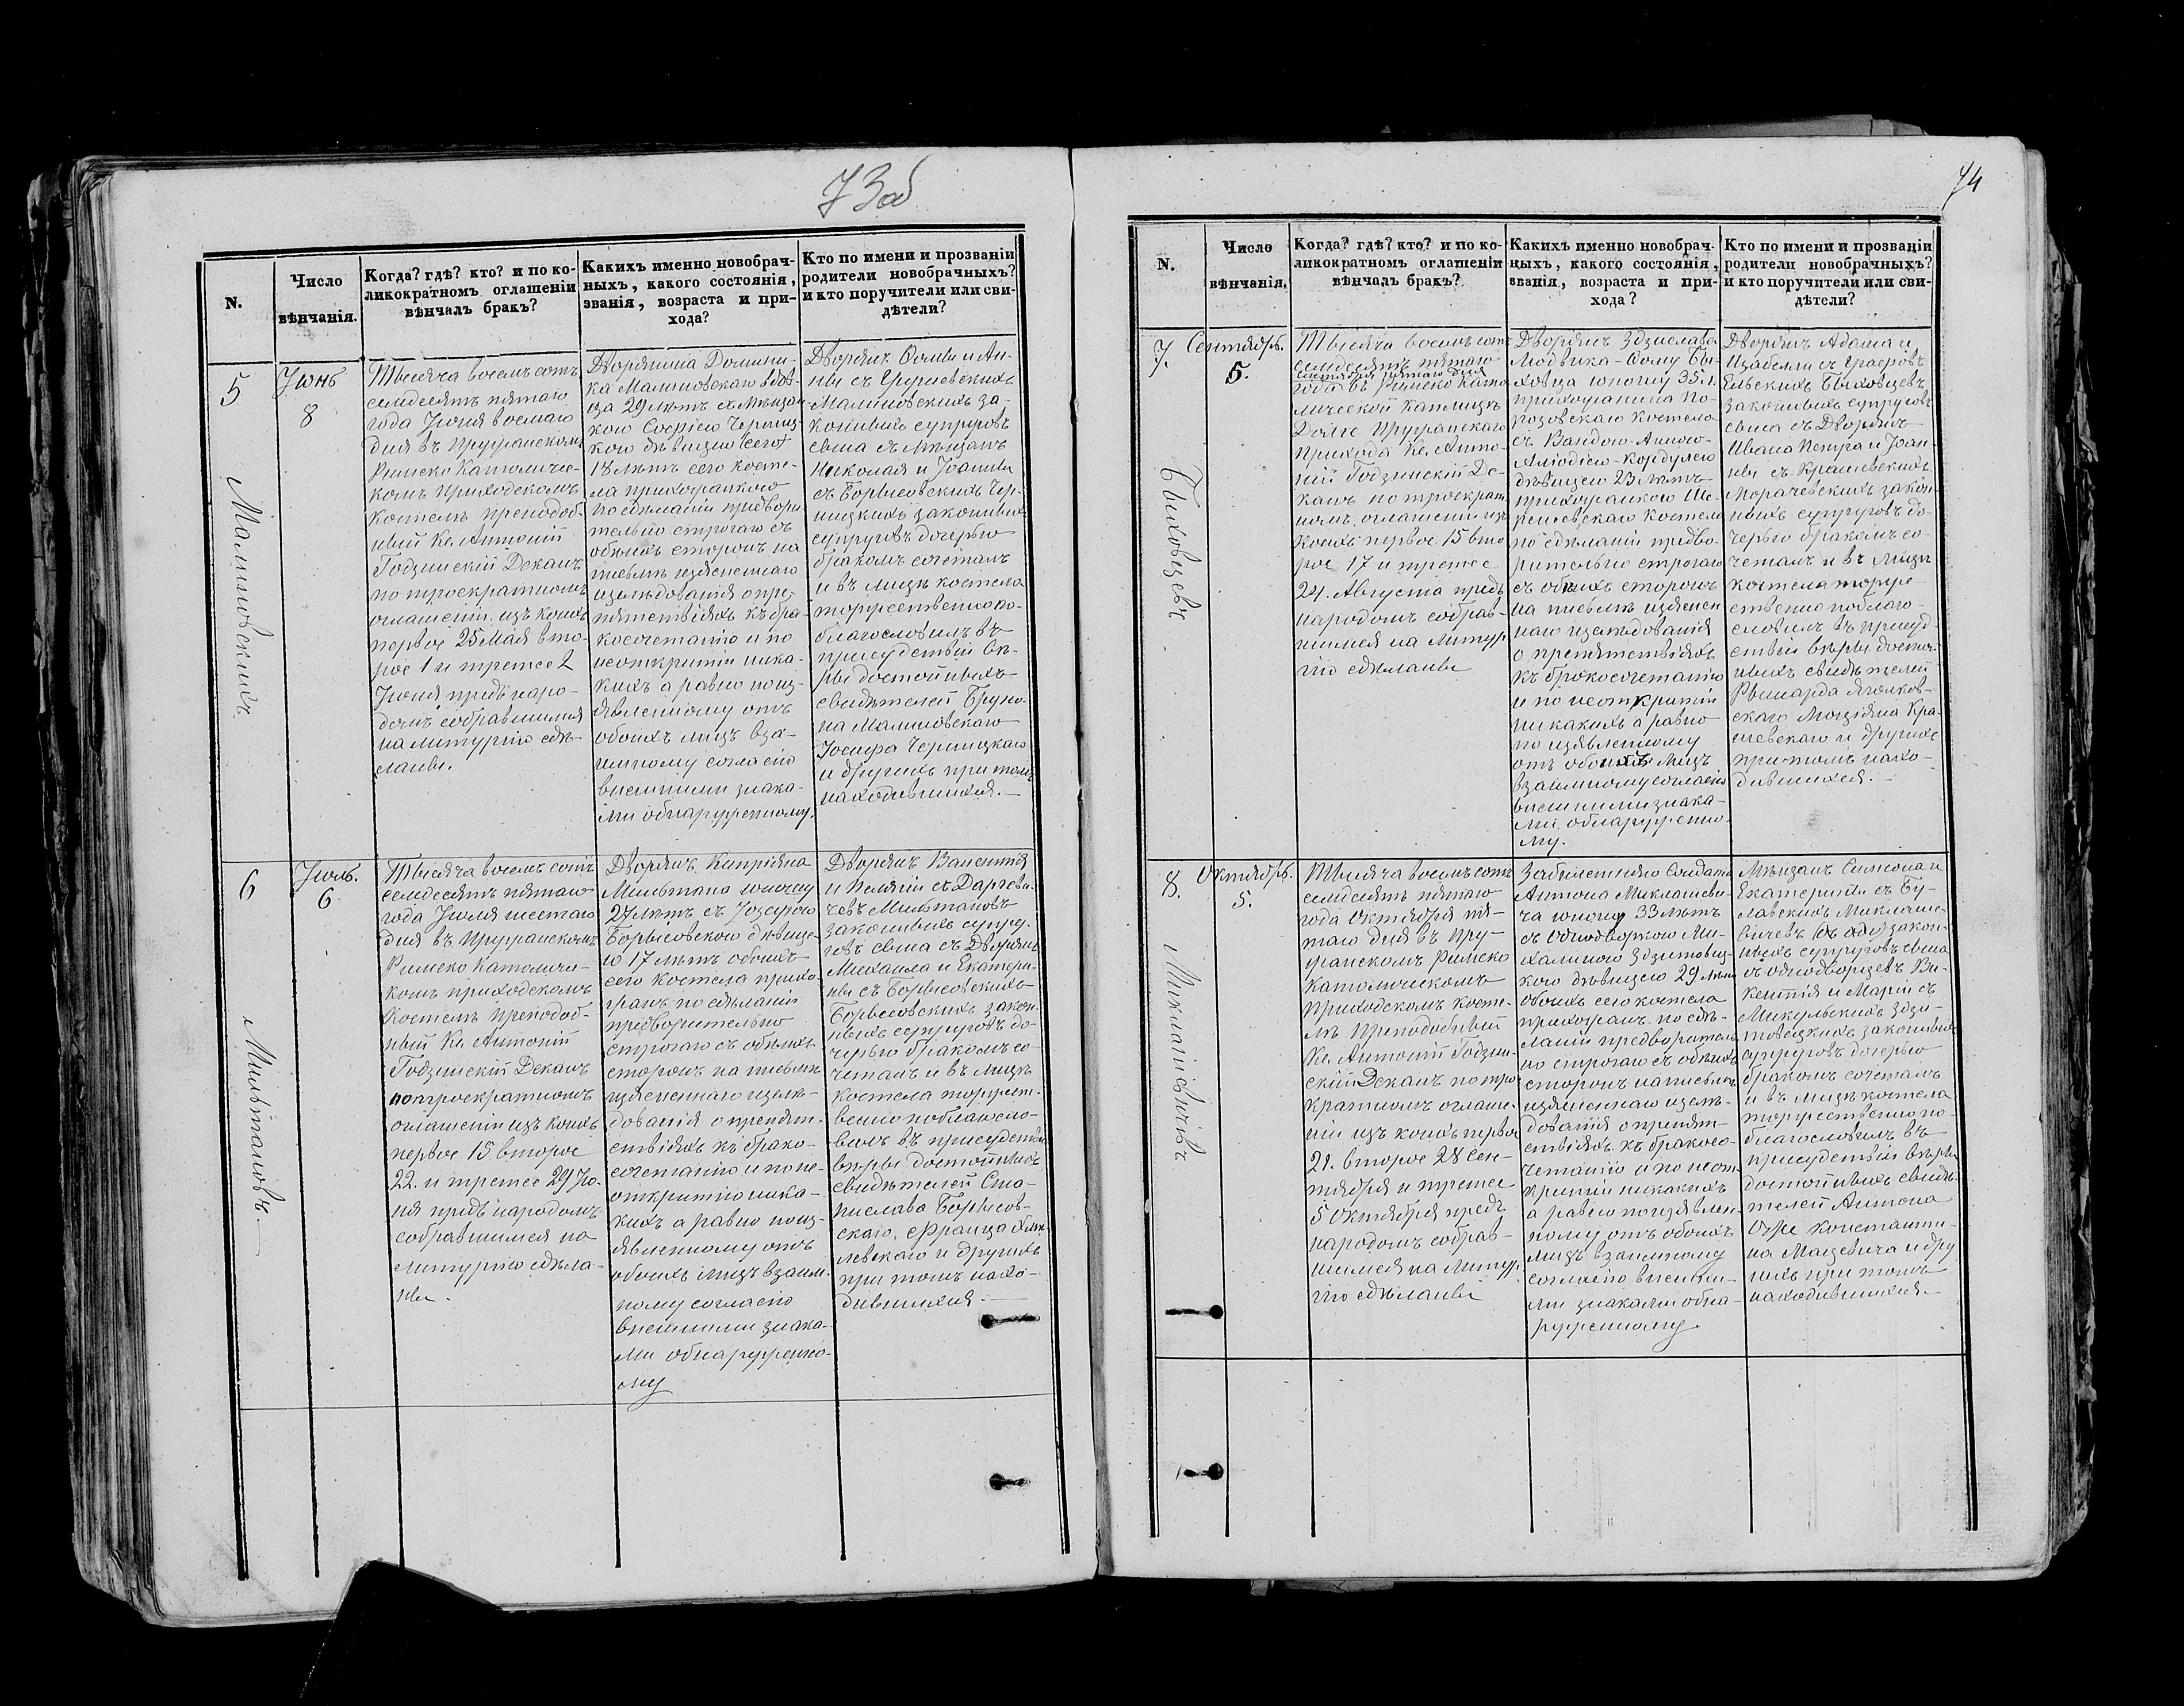 73об
N.
Число
вѣнчанія.
Когда? гдѣ? кто? и по ко-
ликократномъ оглашеніи
вѣнчалъ бракъ?
Какихъ именно новобрач-
ныхъ, какого состоянія,
званія, возраста и при-
хода?
Кто по имени и прозваніи
родители новобрачныхъ?
и кто поручители или сви-
дѣтели?
5
Малиновскихъ.
Іюнь
8
Тысяча восемъ сотъ
семдесятъ пятаго
года Іюня восмаго
дня въ Пружанскомъ
Римско Католичес-
комъ приходскомъ
Костелѣ преподоб-
ный Кс. Антоній
Годзинскій Деканъ
по троекратномъ
оглашеніи изъ коихъ
первое 25 Мая вто-
рое 1 и третее 2
Іюня предъ наро-
домъ собравшимся
на литургію сдѣ-
ланы.
Дворянина Домини-
ка Малиновскаго вдов-
ца 29 лѣтъ съ Мѣщан
кою Софіею Черниц-
кою дѣвицею
18 лѣтъ сего косте-
ла прихожанкою
по сдѣланіи предвори
тельно строгаго съ
обѣихъ сторонъ на
письмѣ изясненнаго
изслѣдованія о пре-
пятствіяхъ къ бра-
косочетанію и по
неоткрытіи ника-
кихъ а равно по из-
явленному отъ
обоихъ лицъ вза-
имному согласію
внешними знака-
ми обнаруженному.
Дворянъ Фомы и Ан-
ны съ
Малиновскихъ за-
конныхъ супруговъ
сына съ Мѣщанъ
Николая и Іоанны
съ Борысовскихъ Чер-
ницкихъ законныхъ
супруговъ дочерью
бракомъ сочеталъ
и въ лицѣ костела
торжественно по-
благословилъ въ
присудствіи вѣ-
ры достойныхъ
свидѣтелей Бруно-
на Малиновскаго
Іосифа Черницкаго
и другихъ при томъ
находившихся.—
6
Мильтановъ.—
Іюль.
6
Тысяча восемъ сотъ
семдесятъ пятаго
года Іюля шестаго
дня въ Пружанскомъ
Римско Католичес-
комъ приходскомъ
Костелѣ Преподоб-
ный Кс. Антоній
Годзинскій Деканъ
по троекратномъ
оглашеніи изъ коихъ
первое 15 второе
22. и третее 29 Ію-
ня предъ народомъ
собравшимся на
литургію сдѣла-
ны.
Дворянъ. Кипріяна
Мильтана юношу
27 лѣтъ съ Іозефою
Борысовскою дѣвице-
ю 17 лѣтъ обоихъ
сего костела прихо-
жанъ по сдѣланіи
предворительно
строгаго съ обѣихъ
сторонъ на письмѣ
изясненнаго изслѣ-
дованія о препят-
ствіяхъ къ брако-
сочетанію и по не-
открытію ника-
кихъ а равно по из-
явленному отъ
обоихъ лицъ взаим-
ному согласію
внешними знака-
ми обнаруженно-
му
Дворянъ Валентія
и Пелагіи съ
Мильтановъ
законныхъ супру-
говъ сына съ Дворянъ
Михаила и Екатери-
ны съ Борысовскихъ
Борысовскихъ закон-
ныхъ супруговъ до-
черью бракомъ со-
четалъ и въ лицѣ
костела торжест-
венно поблагосло-
вилъ въ присудствіи
вѣры достойныхъ
свидѣтелей Ста-
нислава Борысов-
скаго, Франца
левскаго и другихъ
при томъ нахо-
дившихся —
74
N.
Число
вѣнчанія.
Когда? гдѣ? кто? и по ко-
ликократномъ оглашеніи
вѣнчалъ бракъ?
Какихъ именно новобрач-
ныхъ, какого состоянія,
званія, возраста и при-
хода?
Кто по имени и прозваніи
родители новобрачныхъ?
и кто поручители или сви-
дѣтели?
7.
Быховцевъ
Сентябрь.
5.
Тысяча восемъ сотъ
семдесятъ пятаго
сентября пятаго дня
года въ Римско Като
лической Каплицѣ
Дойге Пружанскаго
прихода Кс. Анто-
ній Годзинскій Де-
канъ по троекрат-
номъ оглашеніи изъ
коихъ первое 15 вто
рое 17 и третее
24. Августа предъ
народомъ собрав-
шимся на литур-
гію сдѣланы
Дворянъ Здзислава-
Людвика- Бы-
ховца юношу 35 л.
прихожанина По-
розовскаго Костела
съ Вандою-Анною-
-Кордулею
дѣвицею 23 лѣтъ
прихожанкою Ше-
решевскаго Костела
по сдѣланіи предво-
рительно строгаго
съ обѣихъ сторонъ
на письмѣ изяснен
наго изслѣдованія
о препятствіяхъ
къ бракосочетанію
и по неоткрытіи
никакихъ а равно
по изявленному
отъ обоихъ лицъ
взаимному согласію
внешними знака-
ми обнаруженно-
му.
Дворянъ Адама и
Изабелли съ Графовъ
Ельскихъ Быховцевъ
законныхъ супруговъ
сына съ Дворянъ
Ивана Петра и Іоан-
ны съ Крашевскихъ
Морачевскихъ закон-
ныхъ супруговъ до-
черью бракомъ со-
четалъ и въ лицѣ
костела торже-
ственно поблаго-
словилъ въ присуд-
ствіи вѣры достой-
ныхъ свидѣтелей
Рышарда
скаго Люціяна Кра-
шевскаго и другихъ
при томъ нахо-
дившихся.—
8.
Миклашевичевъ
Октябрь.
5.
Тысяча восемъ сотъ
семдесятъ пятаго
года Октября пя-
таго дня въ Пру-
жанскомъ Римско
Католическомъ
приходскомъ косте-
лѣ Преподобный
Кс. Антоній Годзин-
скій Деканъ по трое
кратномъ оглаше-
ніи изъ коихъ первое
21. второе 28 Сен-
тября и третее
5 Октября предъ
народомъ собрав-
шимся на литур-
гію сдѣланы
Забілетнаго Солдата
Антона Миклашеви-
ча юношу 33 лѣтъ
съ Однодворкою Ми-
халиною Здзитовец-
кою дѣвицею 29 лѣтъ
обоихъ сего костела
прихожанъ по сдѣ-
ланіи предворитель
но строгаго съ обѣихъ
сторонъ на письмѣ
изясненнаго изслѣ-
дованія о препят-
ствіяхъ къ бракосо-
четанію и по неот-
крытіи никакихъ
а равно по изявлен-
ному отъ обоихъ
лицъ взаимному
согласію внешни-
ми знаками обна-
руженному
Мѣщанъ Симеона и
Екатерины съ Бу-
лавскихъ Миклаше-
вичевъ закон-
ныхъ супруговъ сына
съ однодворцевъ Ви-
кентія и Маріи съ
Микульскихъ Здзи-
товецкихъ законныхъ
супруговъ дочерью
бракомъ сочеталъ
и въ лицѣ костела
торжественно по-
благословилъ въ
присудствіи вѣры
достойныхъ свидѣ-
телей Антона
Оже Константи-
на Мацевича и дру
гихъ при томъ
находившихся.—